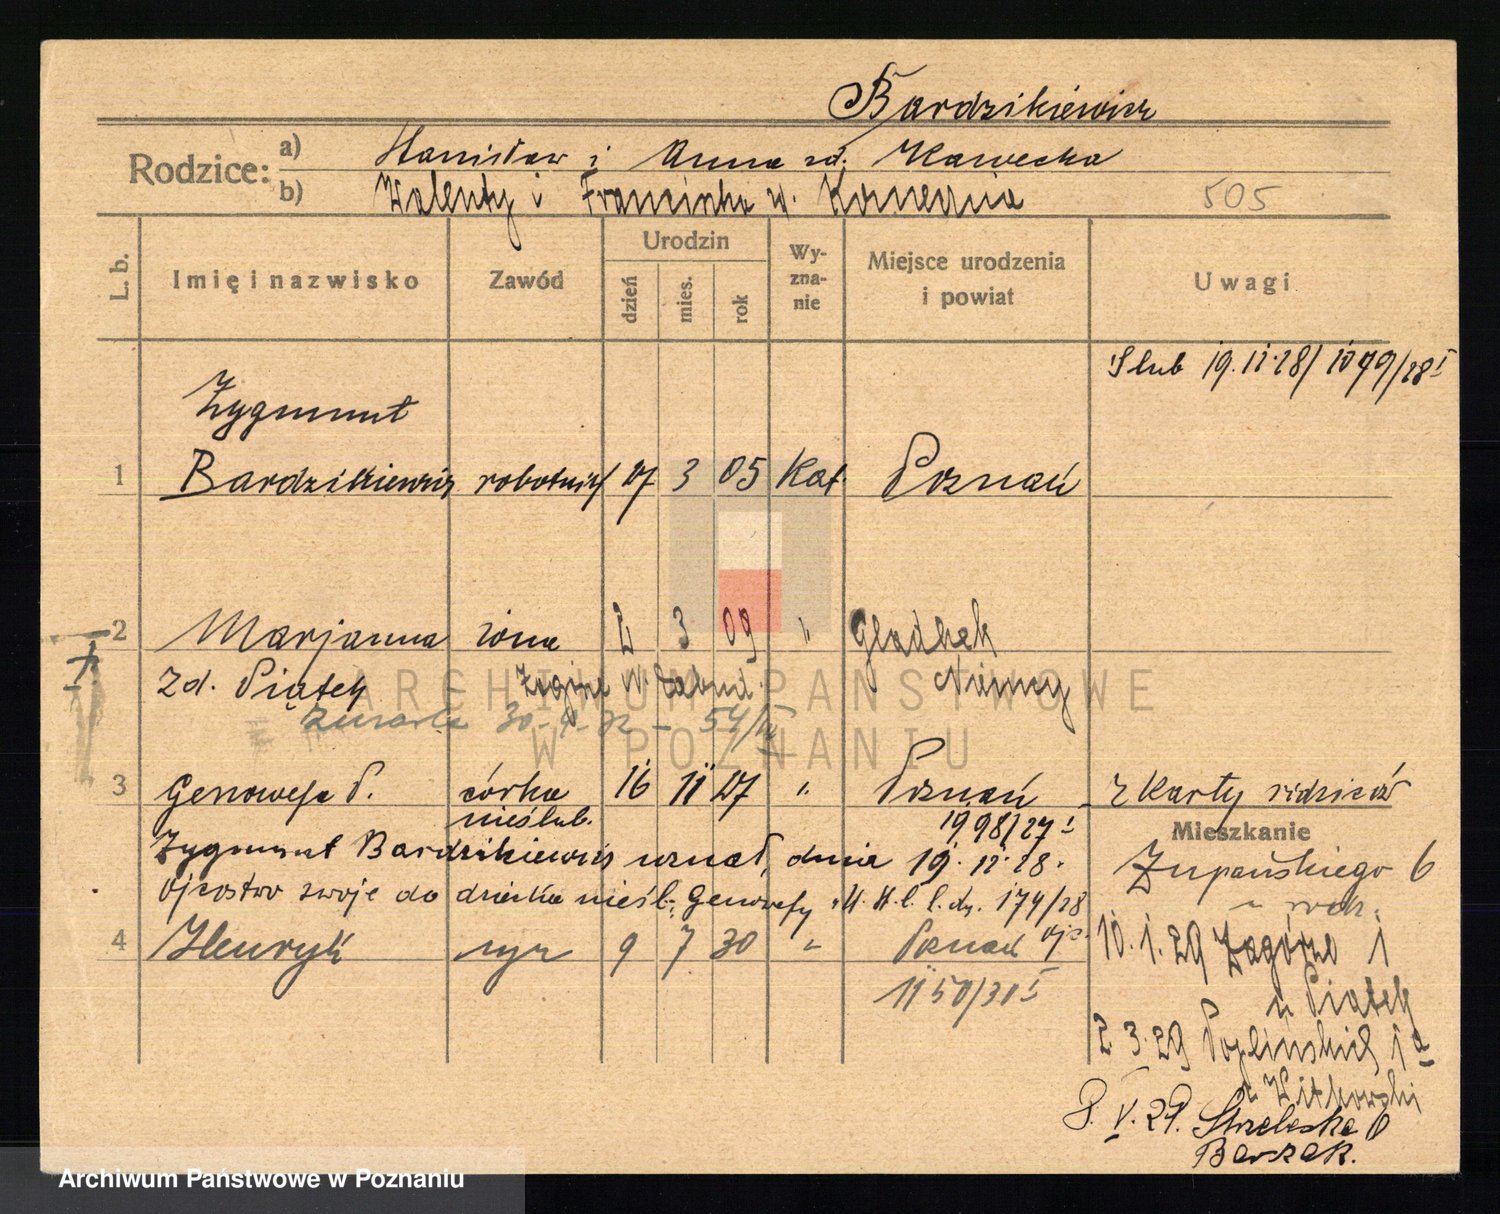 Bardzikiewicz
Rodzice: a) Stanisław i Anna zd. Kawecka
b) Walenty i Franciszka zd. Konieczna
505
L. b. Imię i nazwisko Zawód Urodzin dzień mies. rok Wy-zna-nie Miejsce urodzenia i powiat Uwagi
Slub 19.11.28/1079/28 I
Zygmunt
1 Bardzikiewicz robotnik 27 3 05 Kat. Poznań
2 Marjanna żona 2 3 09 " Gladbek
zd. Piątek Niemcy
zmarła 30- - 32 - 54/
ARCHIWUM PAŃSTWOWE
W POZNANIU
3 Genowefa P. córka 16 11 27 " Poznań z Karty rodziców
nieślub. 1998/27 I
Mieszkanie
Zygmunt Bardzikiewicz uznał, dnia 19.11.28. Żupańskiego 6
ojcostwo swoje do dziecka nieśl. Genowefy 174/28
u rodz.
4 Henryk syn 9 7 30 " Poznań ojc. 10.1.29 Zagórze 1
1150/30 I u Piątek
2.3.29 Poplińskich 1a
u Witkowski
8.V.29. Strzelecka
Barszak.
Archiwum Państwowe w Poznaniu